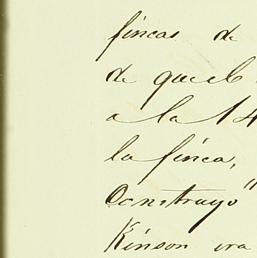 fincas de
de que el
a la 14
la finca,
Construyo"
Kinson era